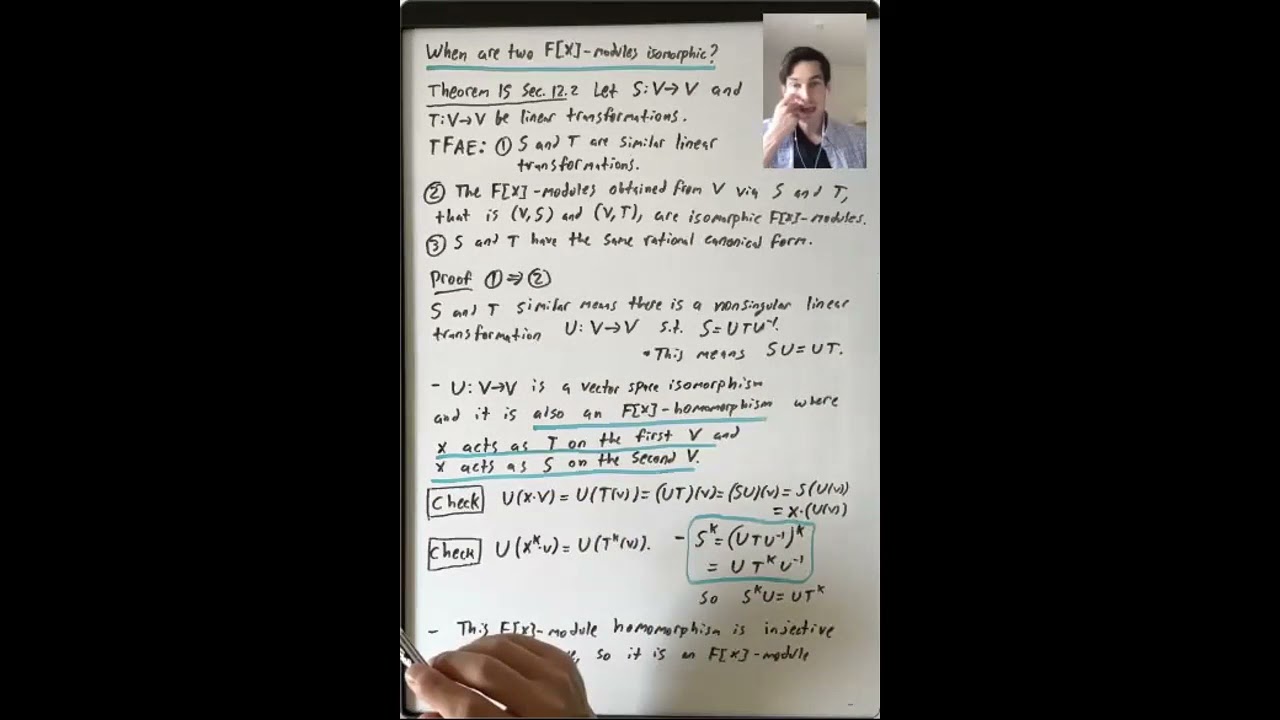 When are two F[x]-modules isomorphic?
Theorem 15 Sec. 12.2 Let S: V→V and
T: V→V be linear transformations.
TFAE: ① S and T are similar linear
transformations.
② The F[x]-modules obtained from V via S and T,
that is (V,S) and (V,T), are isomorphic F[x]-modules.
③ S and T have the same rational canonical form.
Proof ① ⇒ ②
S and T similar means there is a nonsingular linear
transformation U: V→V s.t. S=UTU⁻¹.
• This means SU=UT.
- U: V→V is a vector space isomorphism
and it is also an F[x]-homomorphism where
x acts as T on the first V and
x acts as S on the second V.
Check U(x·v) = U(T(v)) = (UT)(v) = (SU)(v) = S(U(v))
= x·(U(v))
Check U(xᵏ·v) = U(Tᵏ(v)). - Sᵏ = (UTU⁻¹)ᵏ
= UTᵏU⁻¹
So SᵏU = UTᵏ
- This F[x]-module homomorphism is injective
so it is an F[x]-module